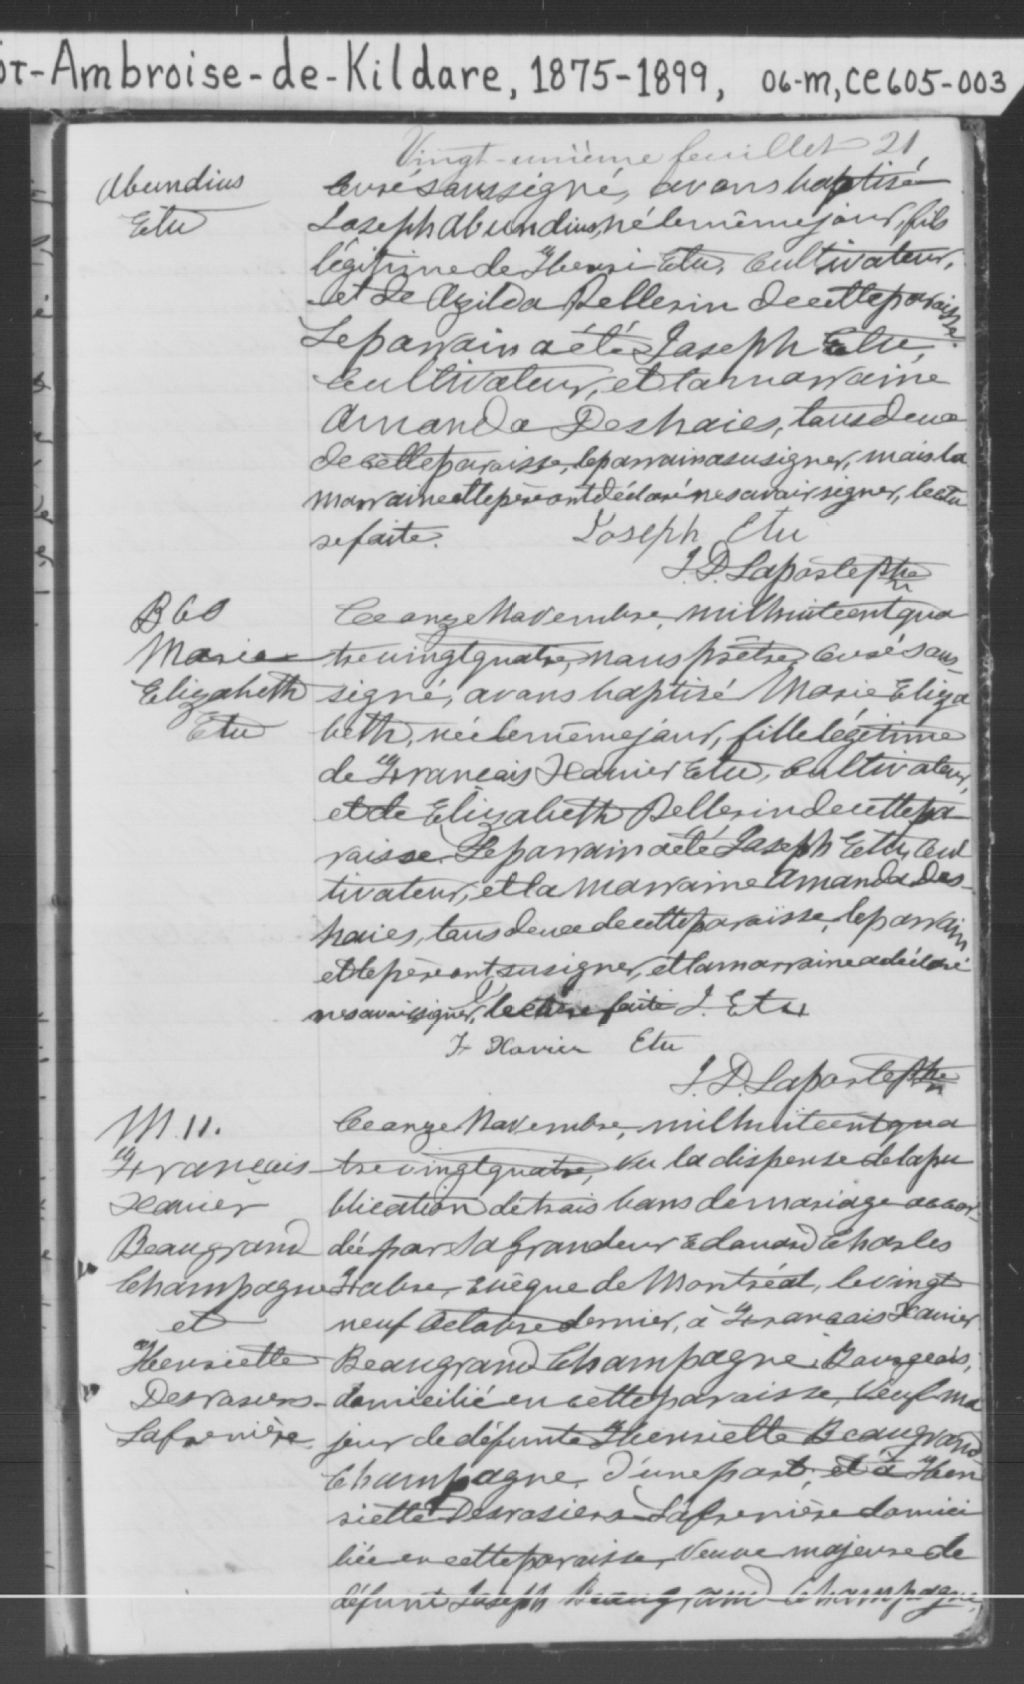 St-Ambroise-de-Kildare, 1875-1899, 06-M, CE605-003
Vingt-unième feuillet 21
Abundius
Etu
Curé soussigné, avons baptisé
Joseph Abundius, né le même jour, fils
légitime de Henri Etu, Cultivateur,
et de Azilda Pellerin de cette paroisse.
Le parrain a été Joseph Etu,
Cultivateur, et la marraine
Amanda Deshaies, tous deux
de cette paroisse, le parrain a su signer, mais la
marraine et le père ont déclaré ne savoir signer, lectu
re faite. Joseph Etu
J. D. Laporte ptre
B 60
Marie
Elizabeth
Etu
Ce onze Novembre, mil huit cent qua
tre vingt quatre, nous prêtre Curé sous
signé, avons baptisé Marie Eliza
beth, née le même jour, fille légitime
de Francais Xavier Etu, Cultivateur,
et de Elizabeth Pellerin de cette pa
roisse. Le parrain a été Joseph Etu, Cul
tivateur, et la marraine Amanda Des
haies, tous deux de cette paroisse, le parrain
et le père ont su signer, et la marraine a déclaré
ne savoir signer, lecture faite J. Etu
F Xavier Etu
J. D. Laporte ptre
M. 11.
Francais
Xavier
Beaugrand
Champagne
et
Henriette
Desrosiers
Lafrenière
Ce onze Novembre, mil huit cent qua
tre vingt quatre, vu la dispense de la pu
blication de trois bans de mariage accor
dée par Sa Grandeur Edouard Charles
Fabre, Evêque de Montréal, le vingt
neuf Octobre dernier, à Francais Xavier
Beaugrand Champagne, Bourgeois,
domicilié en cette paroisse, Veuf ma
jeur de défunte Henriette Beaugrand
Champagne, d'une part, et à Hen
riette Desrosiers Lafrenière domici
liée en cette paroisse, Veuve majeure de
défunt Joseph Beaugrand Champagne,